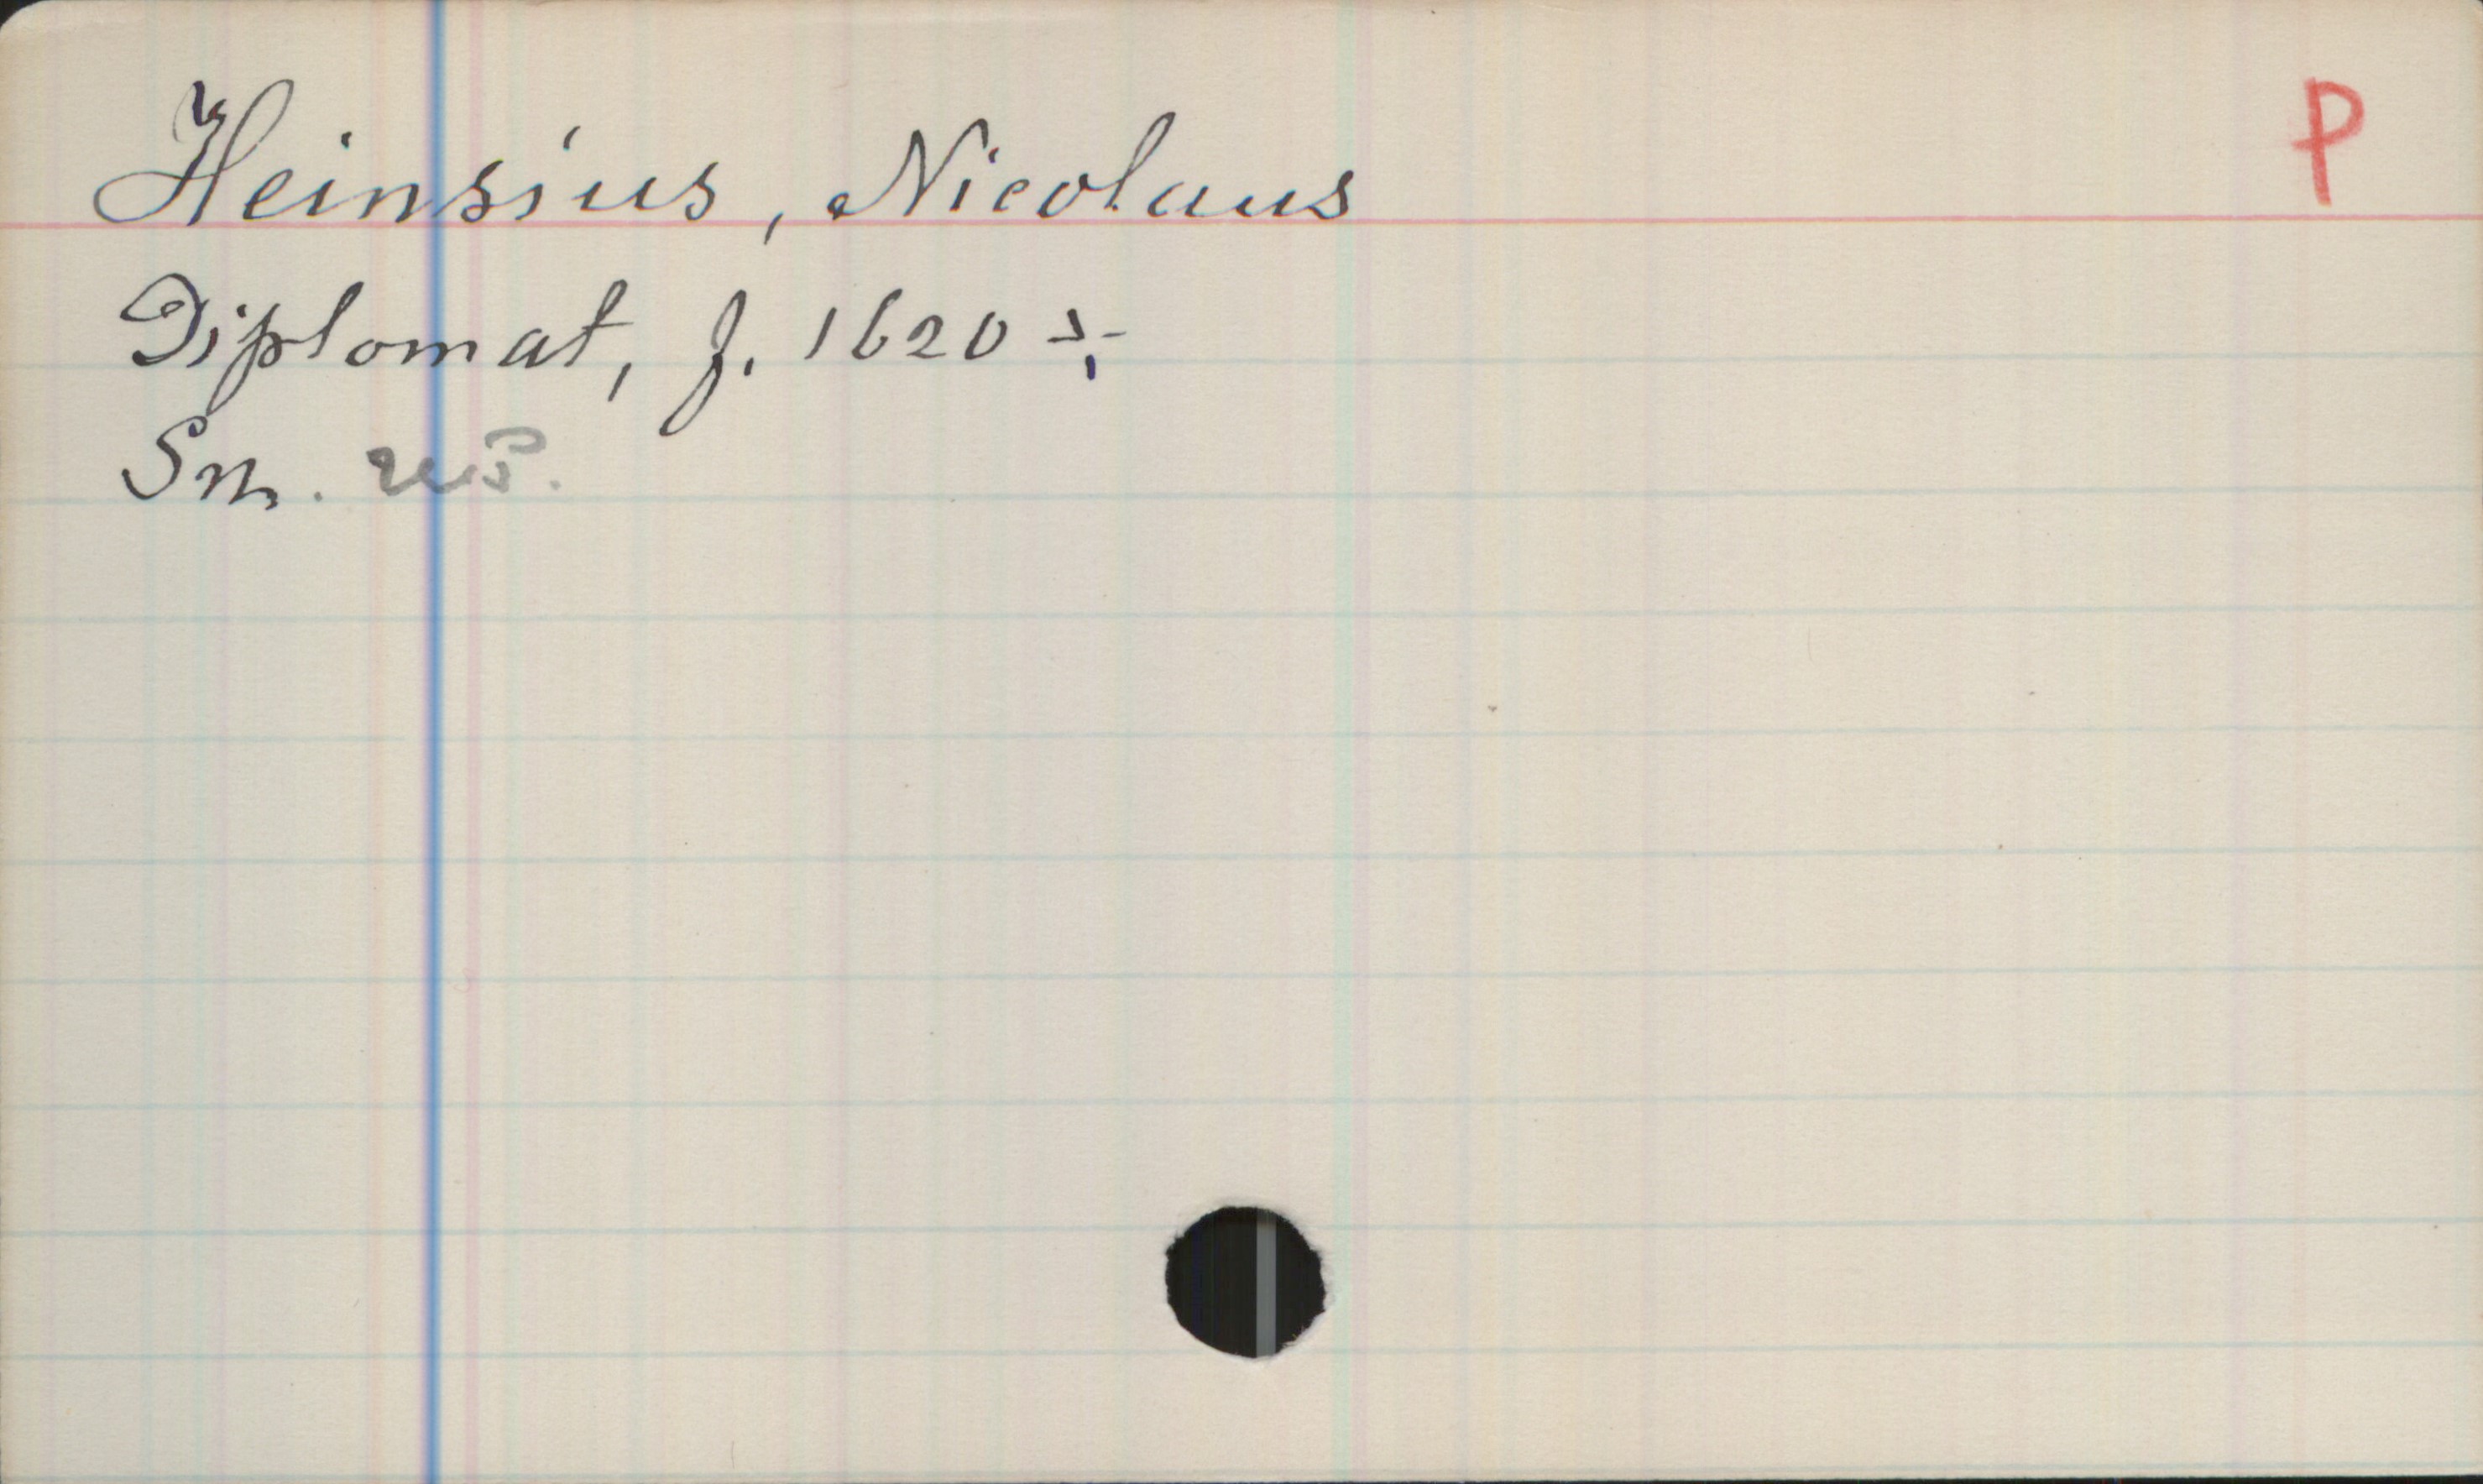 Heinsius, Nicolaus P
Diplomat, f. 1620
Sn.